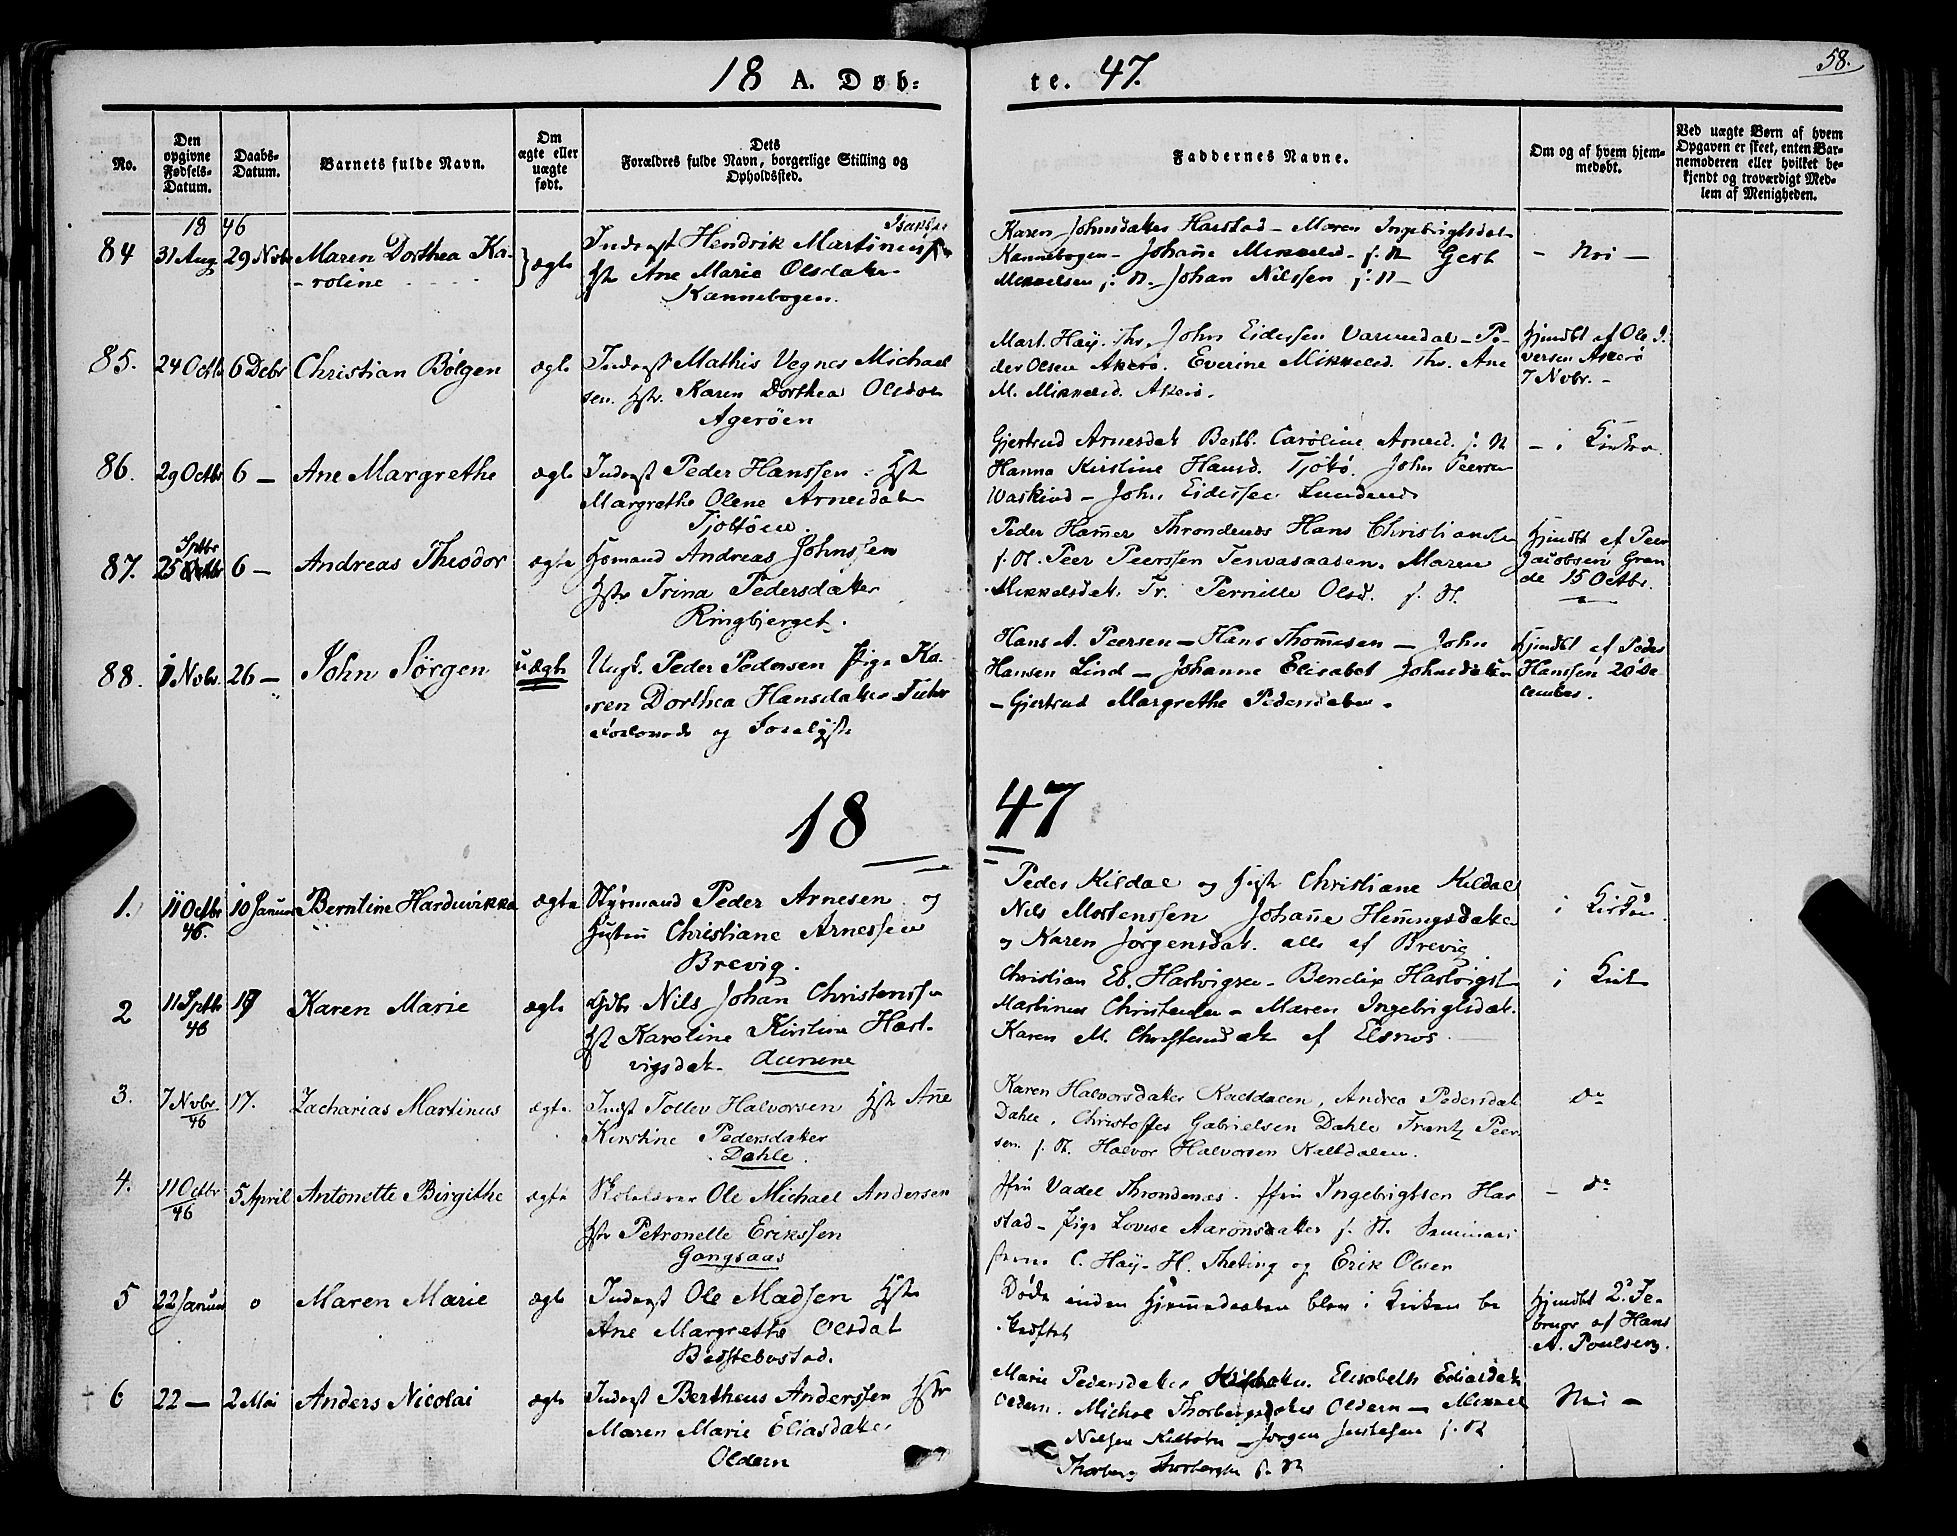 18 A. Døb:
te. 47.
58.
No.
Den opgivne Fødsels-Datum.
Daabs-Datum.
Barnets fulde Navn.
Om ægte eller uægte født.
Dets Forældres fulde Navn, borgerlige Stilling og Opholdssted.
Faddernes Navne.
Om og af hvem hjem-medøbt.
Ved uægte Børn af hvem Opgaven er skeet, enten Bar-nemoderen eller hvilket be-kjendt og troværdigt Med-lem af Menigheden.
18 46
84 31 Aug 29 Nvbr Maren Dorthea Ka-
-roline
ægte
Inderst Hendrik Martinus
Hst Ane Marie Olsdatter
Kannebogen.
Karen Johnsdatter Harstad - Maren Ingebrigtsdat
Kannebogen - Johanne Mikkelsd. f. St Gert
Mikkelsen f. St. Johan Nilssen f. St -
- Nei -
85. 24 Octb 6 Debr Christian Bølgen
ægte
Inderst Mathis Vegner Michael
sen. Hstr. Karen Dorthea Olsdat
Agerøen
Mart. Høy. Ths. John Eidessen Varundal - Pe-
der Olsen Akerø. Everine Mikkelsd. Ths. Ane
M. Mikkelsd. Akerø.
Hjmdbt af Ole I-
versen Akerø
7 Nvbr. -
86. 29 Octbr 6 - Ane Margrethe
ægte
Inderst Peder Hanssen. Hst
Margrethe Olene Arnesdat
Tjøttøen.
Gjertrud Arnesdat Caroline Arnesd. f. St
Hanna Kirstine Hansd. Tjøtø. John Peersen
- John Eidessen
- i Kirken.
87. 25 Septbr 6 - Andreas Theodor
ægte
Huusmand Andreas Johnssen
Hstr Trina Pedersdatter
Ringbjerget.
Peder Hamer Throndenes Hans Christiansen
f. St. Peer Peerssen Tenvasaasen. Maren
Mikkelsdat. Tr. Pernille Olsd. f. St.
Hjmdbt af Peer
Jacobsen Gran
de 15 Octbr.
88. 1 Nvbr. 26 - John Sørgen
uægte
Ungk. Peder Pedersen Pige Ka-
ren Dorthea Hansdatter
og
Hans A. Peersen - Hans Thomesen - John
Hansen Lind - Johanne Elisabet Johnsdatter
- Gjertrud Margrethe Pedersdatter.
Hjmdbt af Peder
Hanssen 20 De
cember.
18 47
1. 11 Octbr 46. 10 Januar Berntine Harduvikka
ægte
Styrmand Peder Arnesen og
Hustru Christiane Arnessen
Brevig.
Peder Kildal og Hst Christiane Kildal
Nils Mortenssen Johanne Hemingsdatter
og Karen Jørgensdat. alle af Brevig
i Kirken.
2 11 Septbr 46 17 Karen Marie
ægte
Gdbr Nils Johan Christenssen
Hst Karoline Kirstine Hart-
vigsdat. Aunene
Christian Eb. Hartvigsen - Bendix Hartvigs
Martinus Christensen - Maren Ingebrigtsdat.
Karen M. Christensdat af Elgnes
i Kirk
3. 7 Nvbr. 46 17. Zacharias Martinus
ægte.
Indst Tollev Halvorsen Hst Ane
Kirstine Pedersdatter
Dahle.
Karen Halvorsdatter Kieldalen, Andrea Pedersdat
Dahle, Christoffer Gabrielsen Dahle Frantz Peer-
sen f. St. Halvor Halvorsen Kelldalen.
do
4. 11 Octbr 46 5 April Antonette Birgithe
ægte
Skolelærer Ole Michael Andersen
Hstr Petronelle Erikssen
Gangsaas
Ffru Vadel Throndenes. Ffru Ingebrigtsen Har
stad - Pige Lovise Aaronsdatter f. St. Seminari
sterne C. Høy - H. Theting og Erik Olsen
- do
5 22 Januar o Maren Marie
ægte
Inderst Ole Madsen Hstr
Ane Margrethe Olsdat
Døde inden Hjemmedaaben blev i Kirken be
kræftet
Hjmdbt 2. Fe-
bruar af Hans
A. Poulsen.
6 22 - 2 Mai Anders Nicolai
ægte
Inderst Bertheus Anderssen Hstr
Maren Marie Eliasdatter
Oldern
Marie Pedersdatter Elisabeth Eliasdat
Oldern. Michal Thorbergsdatter Oldern - Mikkel
Nilsen Kilbotn - Jørgen Justesen f. St
Thorberg f. St
Nei -